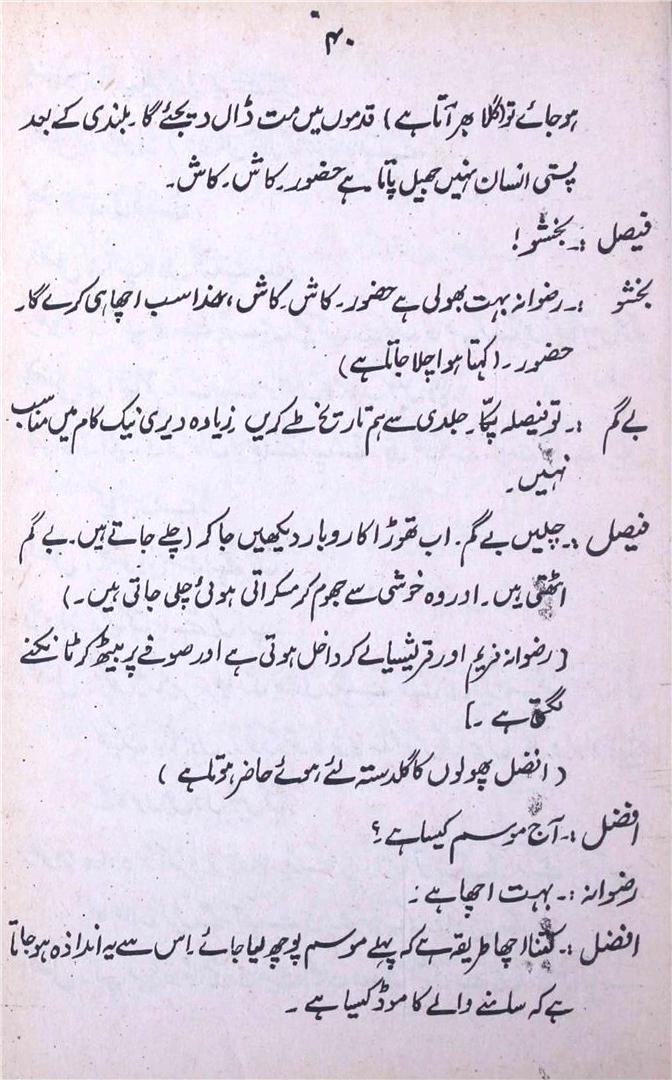 ۴۰
ہوجائے تو (گلا بھر آتا ہے) قدموں میں مت ڈال دیجئے گا۔ بلندی کے بعد
پستی انسان نہیں جھیل پاتا ہے حضور۔ کاش۔ کاش۔
فیصل :۔ بخشو!
بخشو :۔ رضوانہ بہت بھولی ہے حضور۔ کاش۔ کاش، خدا سب اچھا ہی کرے گا۔
حضور۔ (کہتا ہوا چلا جاتا ہے)
بے گم :۔ تو فیصلہ پکا۔ جلدی سے ہم تاریخ طے کریں۔ زیادہ دیری نیک کام میں مناسب
نہیں۔
فیصل :۔ چلیں بے گم۔ اب تھوڑا کاروبار دیکھیں جا کر (چلے جاتے ہیں۔ بے گم
اٹھتی ہیں۔ اور وہ خوشی سے جھوم کر مسکراتی ہوئی چلی جاتی ہیں۔)
(رضوانہ فریم اور قریشیا لے کر داخل ہوتی ہے اور صوفے پر بیٹھ کر ٹانکنے
لگتی ہے۔]
(افضل پھولوں کا گلدستہ لئے ہوئے حاضر ہوتا ہے)
افضل :۔ آج موسم کیسا ہے۔؟
رضوانہ :۔ بہت اچھا ہے۔
افضل :۔ کتنا اچھا طریقہ ہے کہ پہلے موسم پوچھ لیا جائے۔ اس سے یہ اندازہ ہو جاتا
ہے کہ سامنے والے کا موڈ کیسا ہے۔